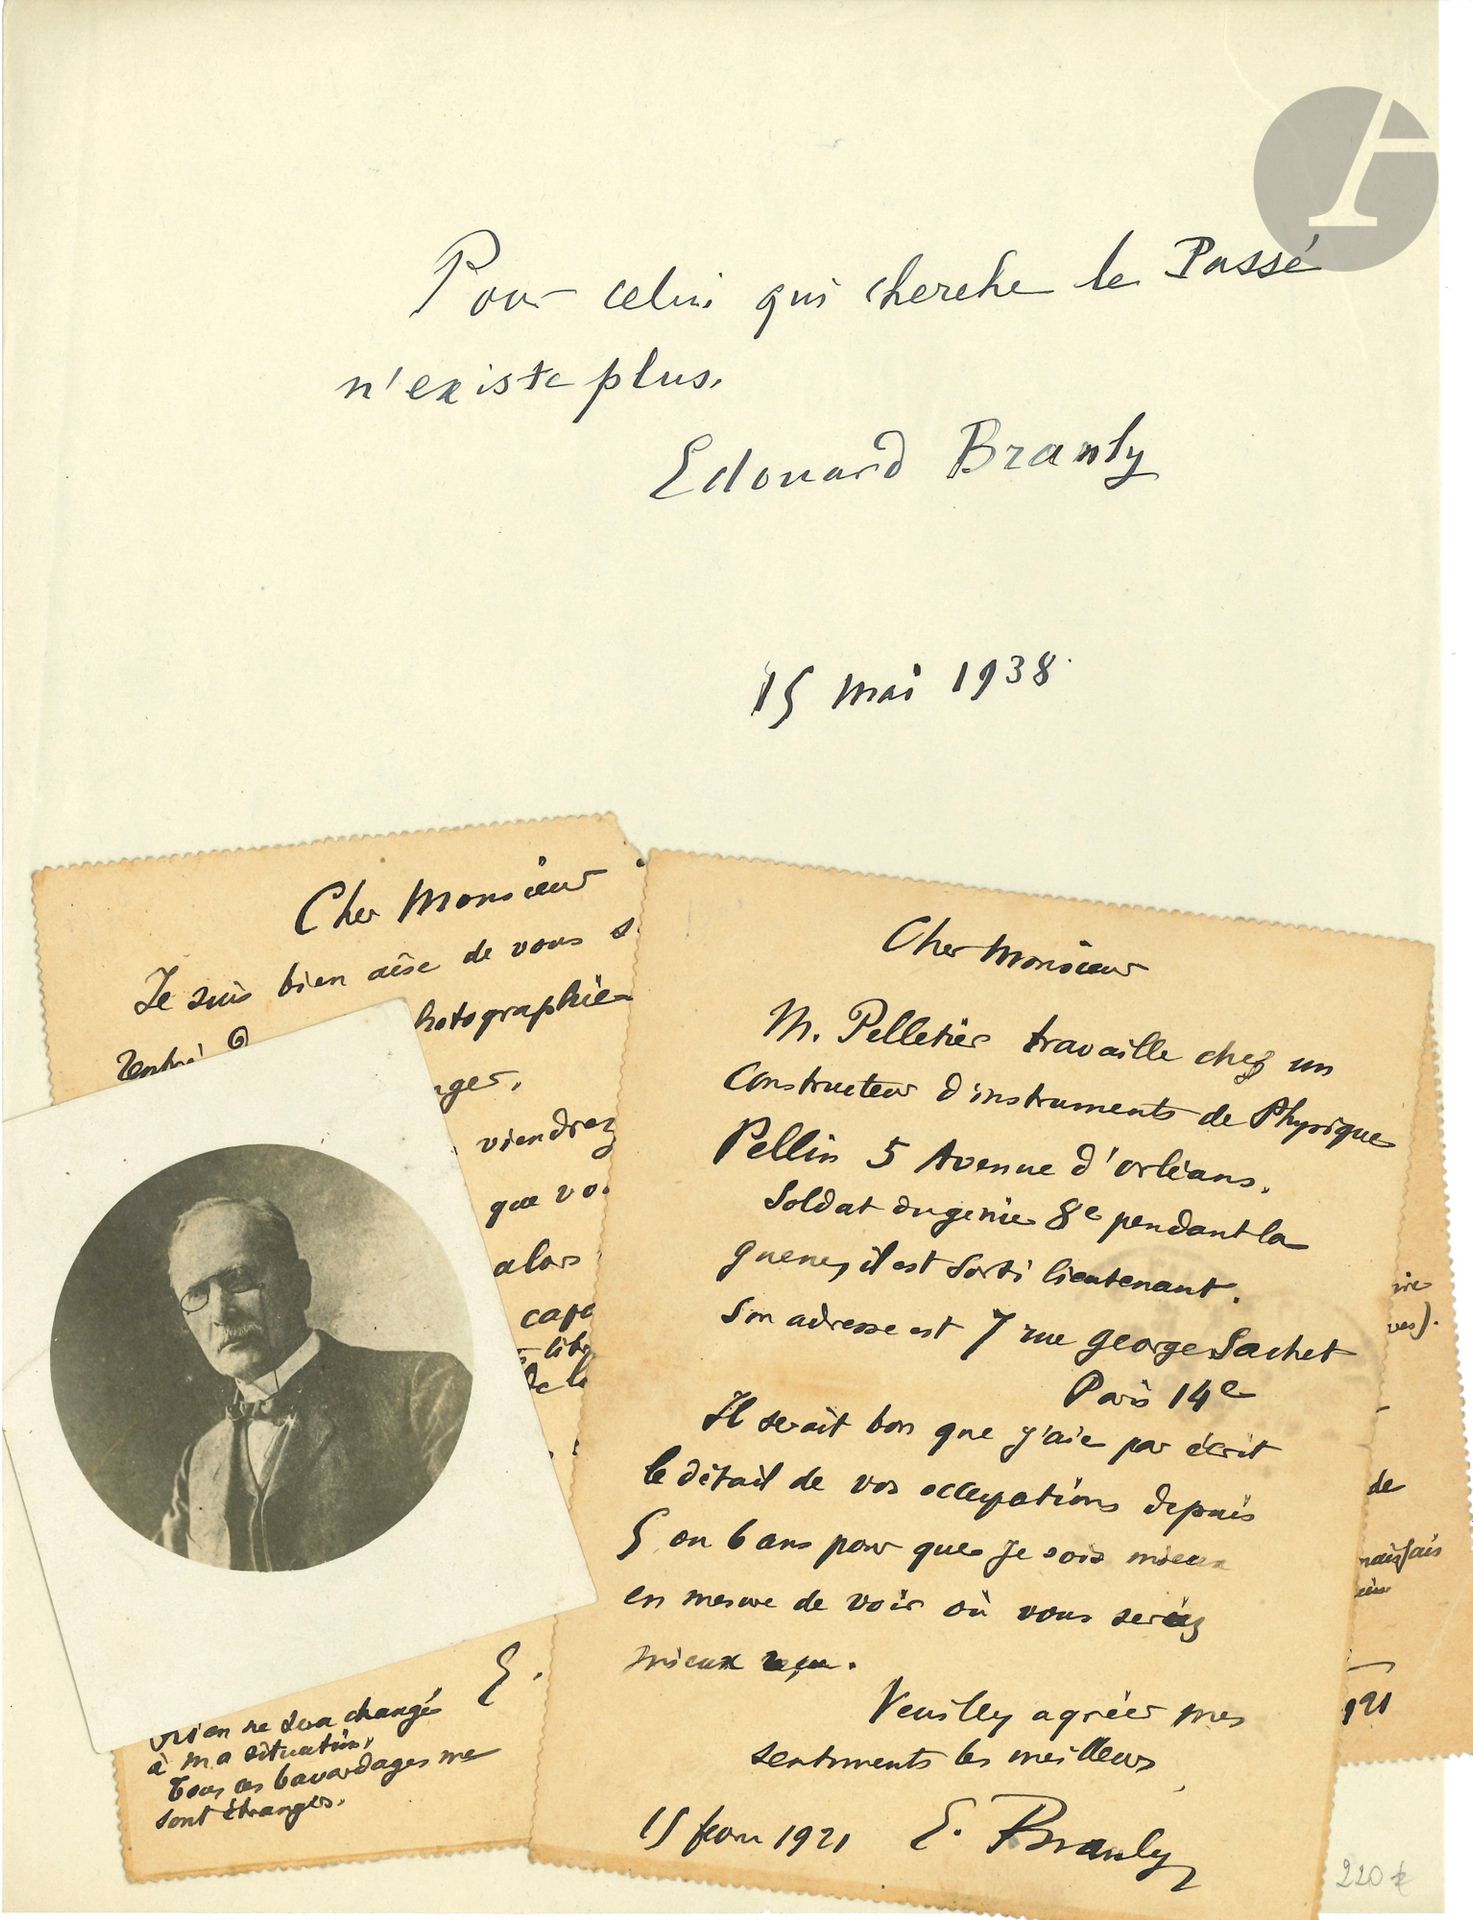 Pour celui qui cherche le Passé
n'existe plus.
Edouard Branly
15 mai 1938
Cher Monsieur
Je suis bien aise de vous s
rentré
hotographie
nger.
viendrez
que vo
alors
capa
libr
de l
E.
Rien ne sera changé
à ma situation,
Tous ces bavardages me
sont étranges.
Cher Monsieur
M. Pelletier travaille chez un
constructeur d'instruments de Physique
Pellin 5 Avenue d'orléans.
Soldat du génie 8e pendant la
guerre, il est sorti lieutenant.
Son adresse est 7 rue George Sachet
Paris 14e
Il serait bon que j'aie par écrit
le détail de vos occupations depuis
5 ou 6 ans pour que je sois mieux
en mesure de voir où vous seriez
mieux reçu.
Veuillez agréer mes
sentiments les meilleurs
15 fevr 1921 E. Branly
ire
ves).
de
mais fais
921
220 €